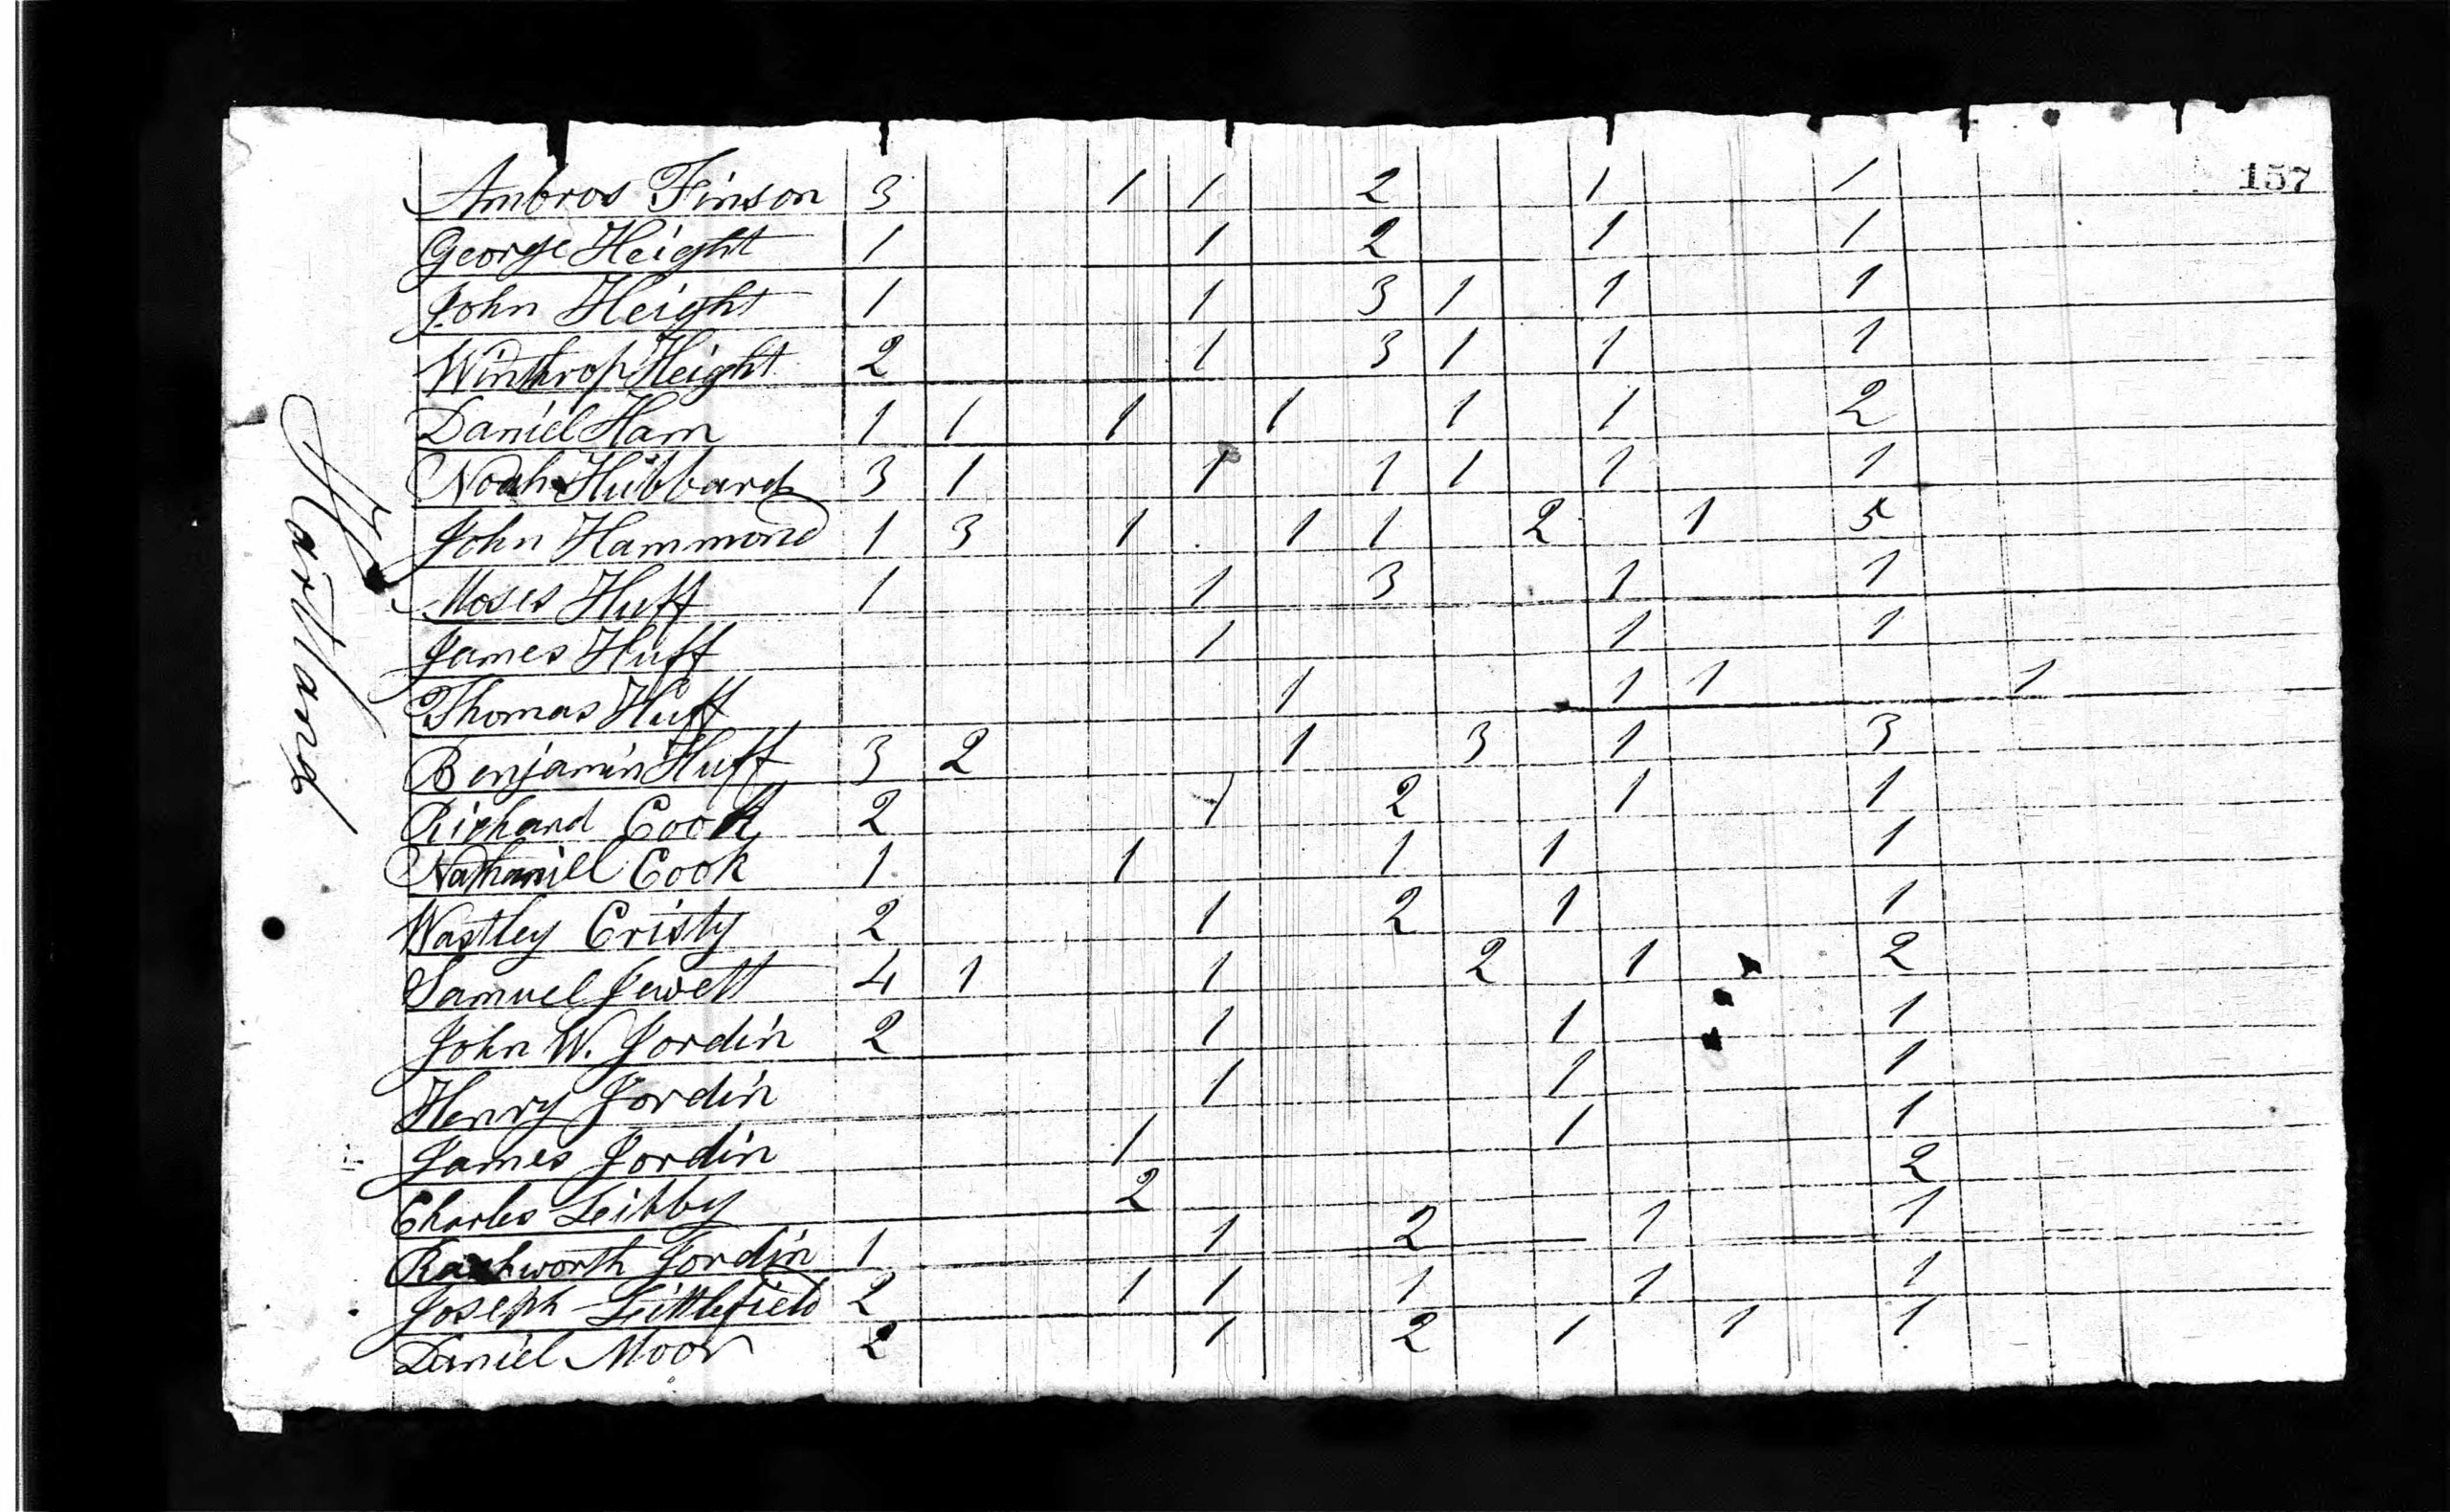 157
Hartland
Ambros Finson 3 1 1 2 1 1
George Height 1 1 2 1 1
John Height 1 1 3 1 1 1
Winthrop Height 2 1 3 1 1 1
Daniel Ham 1 1 1 1 1 1 2
Noah Hubbard 3 1 1 1 1 1 1
John Hammond 1 3 1 1 1 2 1 5
Moses Huff 1 1 3 1 1
James Huff 1 1 1
Thomas Huff 1 1 1 1
Benjamin Huff 3 2 1 3 1 3
Richard Cook 2 1 2 1 1
Nathaniell Cook 1 1 1 1 1
Wastley Cristy 2 1 2 1 1
Samuel Jewett 4 1 1 2 1 2
John W. Jordin 2 1 1 1
Henry Jordin 1 1 1
James Jordin 1 1 1
Charles Leibby 2 2
Jordin 1 1 2 1 1
Joseph Littlefield 2 1 1 1 1 1
Daniel Moor 2 1 2 1 1 1